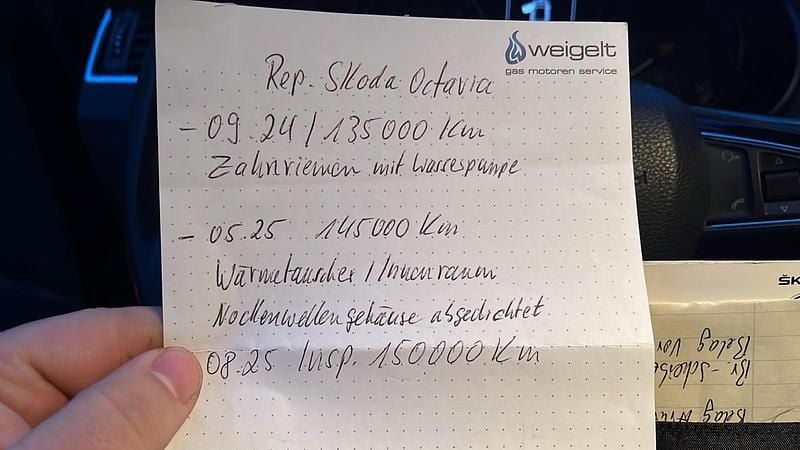 weigelt
gas motoren service
Rep. Skoda Octavia
- 09.24 / 135000 Km
Zahnriemen mit Wasserpumpe
- 05.25 145000 Km
Wärmetauscher / Innenraum
Nockenwellengehäuse abgedichtet
08.25 Insp. 150000 Km
ŠK
Belag Vor
Br.-Scheibe
Belag